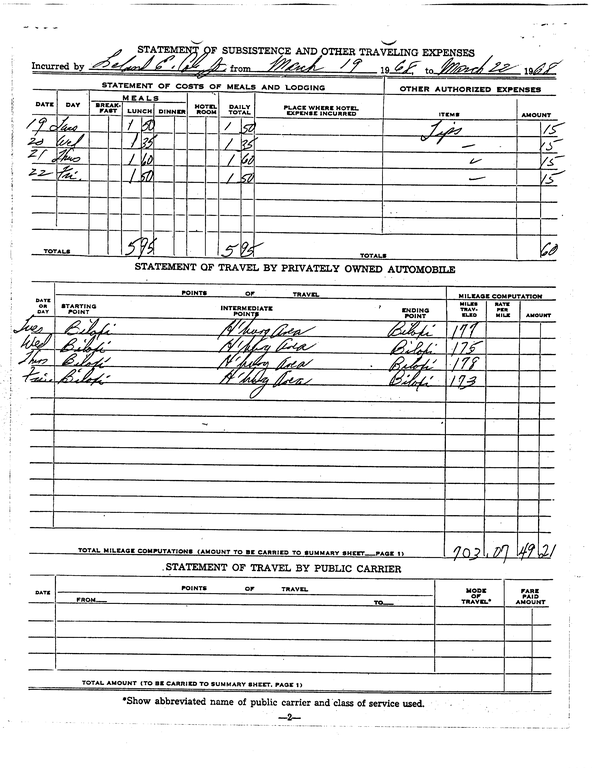 STATEMENT OF SUBSISTENCE AND OTHER TRAVELING EXPENSES
Incurred by E. Cole, Jr. from March 19 1968 to March 22 1968
STATEMENT OF COSTS OF MEALS AND LODGING OTHER AUTHORIZED EXPENSES
DATE DAY MEALS BREAK-FAST LUNCH DINNER HOTEL ROOM DAILY TOTAL PLACE WHERE HOTEL EXPENSE INCURRED ITEMS AMOUNT
19 Tues 1 50 1 50 Tips 15
20 Wed 1 35 1 35 — 15
21 Thus 1 60 1 60 ✓ 15
22 Fri. 1 50 1 50 — 15
TOTALS 5 95 5 95 TOTALS 60
STATEMENT OF TRAVEL BY PRIVATELY OWNED AUTOMOBILE
DATE OR DAY POINTS OF TRAVEL MILEAGE COMPUTATION
STARTING POINT INTERMEDIATE POINTS ENDING POINT MILES TRAV-ELED RATE PER MILE AMOUNT
Tues Biloxi H'burg Area Biloxi 177
Wed Biloxi H'burg Area Biloxi 175
Thus Biloxi H'burg Area Biloxi 178
Fri Biloxi H'burg Area Biloxi 173
TOTAL MILEAGE COMPUTATIONS (AMOUNT TO BE CARRIED TO SUMMARY SHEET—PAGE 1) 703 .07 49 21
STATEMENT OF TRAVEL BY PUBLIC CARRIER
DATE POINTS OF TRAVEL MODE OF TRAVEL* FARE PAID AMOUNT
FROM— TO—
TOTAL AMOUNT (TO BE CARRIED TO SUMMARY SHEET, PAGE 1)
*Show abbreviated name of public carrier and class of service used.
—2—